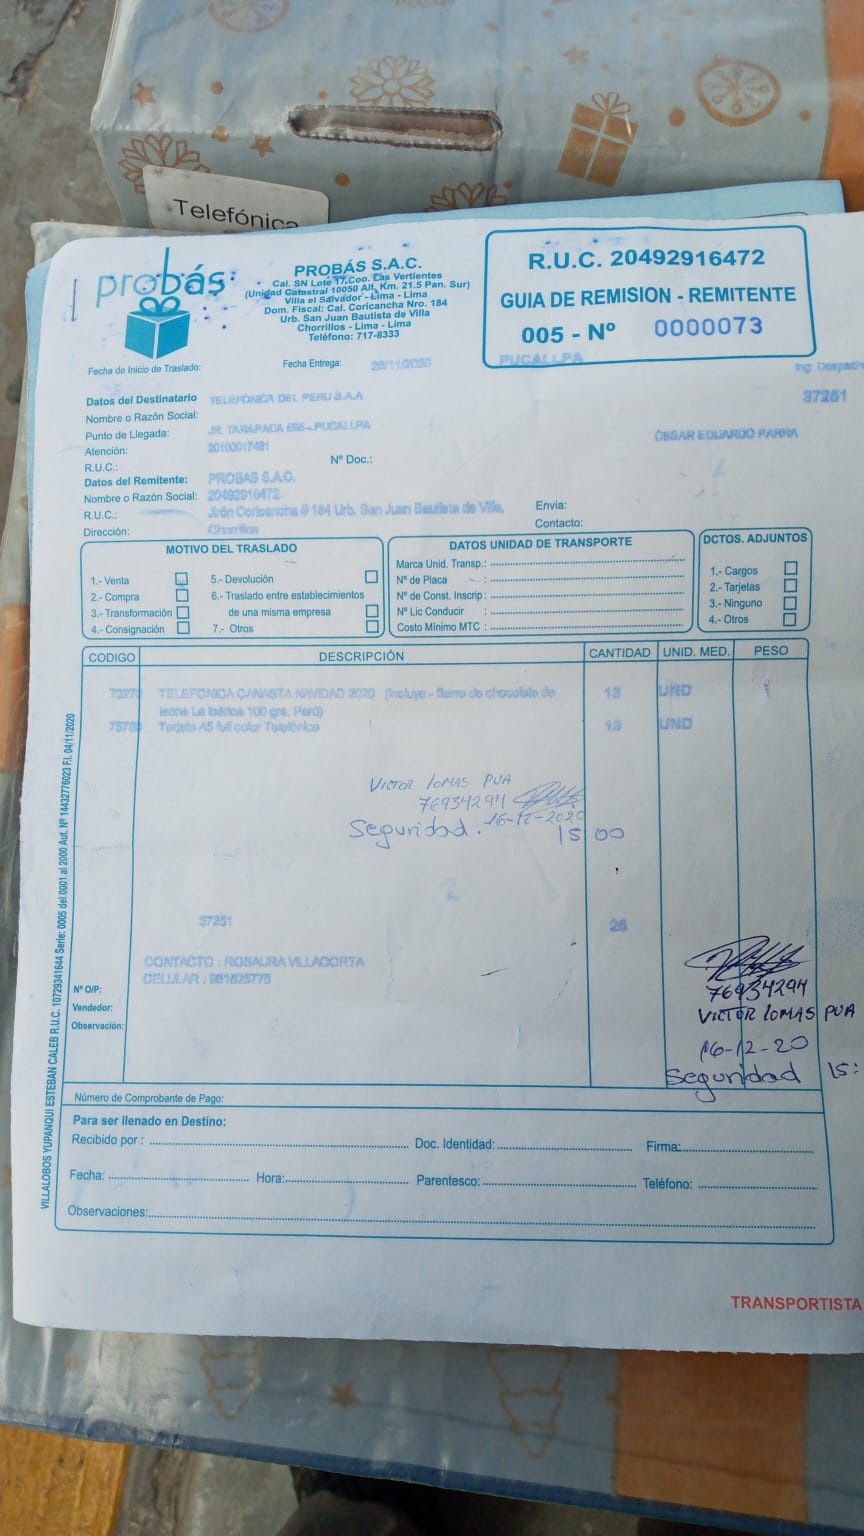 Telefónica
probás
PROBÁS S.A.C.
Cal. SN Lote 17.Coo. Las Vertientes
(Unidad Catastral 10050 Alt. Km. 21.5 Pan. Sur)
Villa el Salvador - Lima - Lima
Dom. Fiscal: Cal. Coricancha Nro. 184
Urb. San Juan Bautista de Villa
Chorrillos - Lima - Lima
Teléfono: 717-8333
R.U.C. 20492916472
GUIA DE REMISION - REMITENTE
005 - Nº 0000073
Fecha de Inicio de Traslado:
Fecha Entrega: 28/11/2020
PUCALLPA
Ing: Despacho
37251
Datos del Destinatario
Nombre o Razón Social: TELEFONICA DEL PERU S.A.A
Punto de Llegada: JR. TARAPACA - PUCALLPA
Atención: 20100017491
CESAR EDUARDO PARRA
R.U.C.:
Nº Doc.:
Datos del Remitente: PROBAS S.A.C.
Nombre o Razón Social: 20492916472
R.U.C.: Jirón Coricancha # 184 Urb. San Juan Bautista de Villa,
Dirección: Chorrillos
Envia:
Contacto:
MOTIVO DEL TRASLADO
1.- Venta
2.- Compra
3.- Transformación
4.- Consignación
5.- Devolución
6.- Traslado entre establecimientos
de una misma empresa
7.- Otros
DATOS UNIDAD DE TRANSPORTE
Marca Unid. Transp.:
Nº de Placa :
Nº de Const. Inscrip :
Nº Lic Conducir :
Costo Mínimo MTC :
DCTOS. ADJUNTOS
1.- Cargos
2.- Tarjetas
3.- Ninguno
4.- Otros
CODIGO DESCRIPCIÓN CANTIDAD UNID. MED. PESO
TELEFONICA CANASTA NAVIDAD 2020 (Incluye - Barra de chocolate de 13 UND
leche La Ibérica 100 grs. Perú)
Tarjeta A5 full color Telefónica 13 UND
VICTOR LOMAS PUA
76934294
16-12-2020
Seguridad. 15:00
2
37251 26
CONTACTO : ROSAURA VILLACORTA
CELULAR : 981625775
Nº O/P:
Vendedor:
Observación:
76934294
VICTOR LOMAS PUA
16-12-20
Seguridad 15:
Número de Comprobante de Pago:
Para ser llenado en Destino:
Recibido por : Doc. Identidad: Firma:
Fecha: Hora: Parentesco: Teléfono:
Observaciones:
VILLALOBOS YUPANQUI ESTEBAN CALEB R.U.C. 10729341644 Serie: 0005 del 0001 al 2000 Aut. Nº 14432776023 F.I. 04/11/2020
TRANSPORTISTA